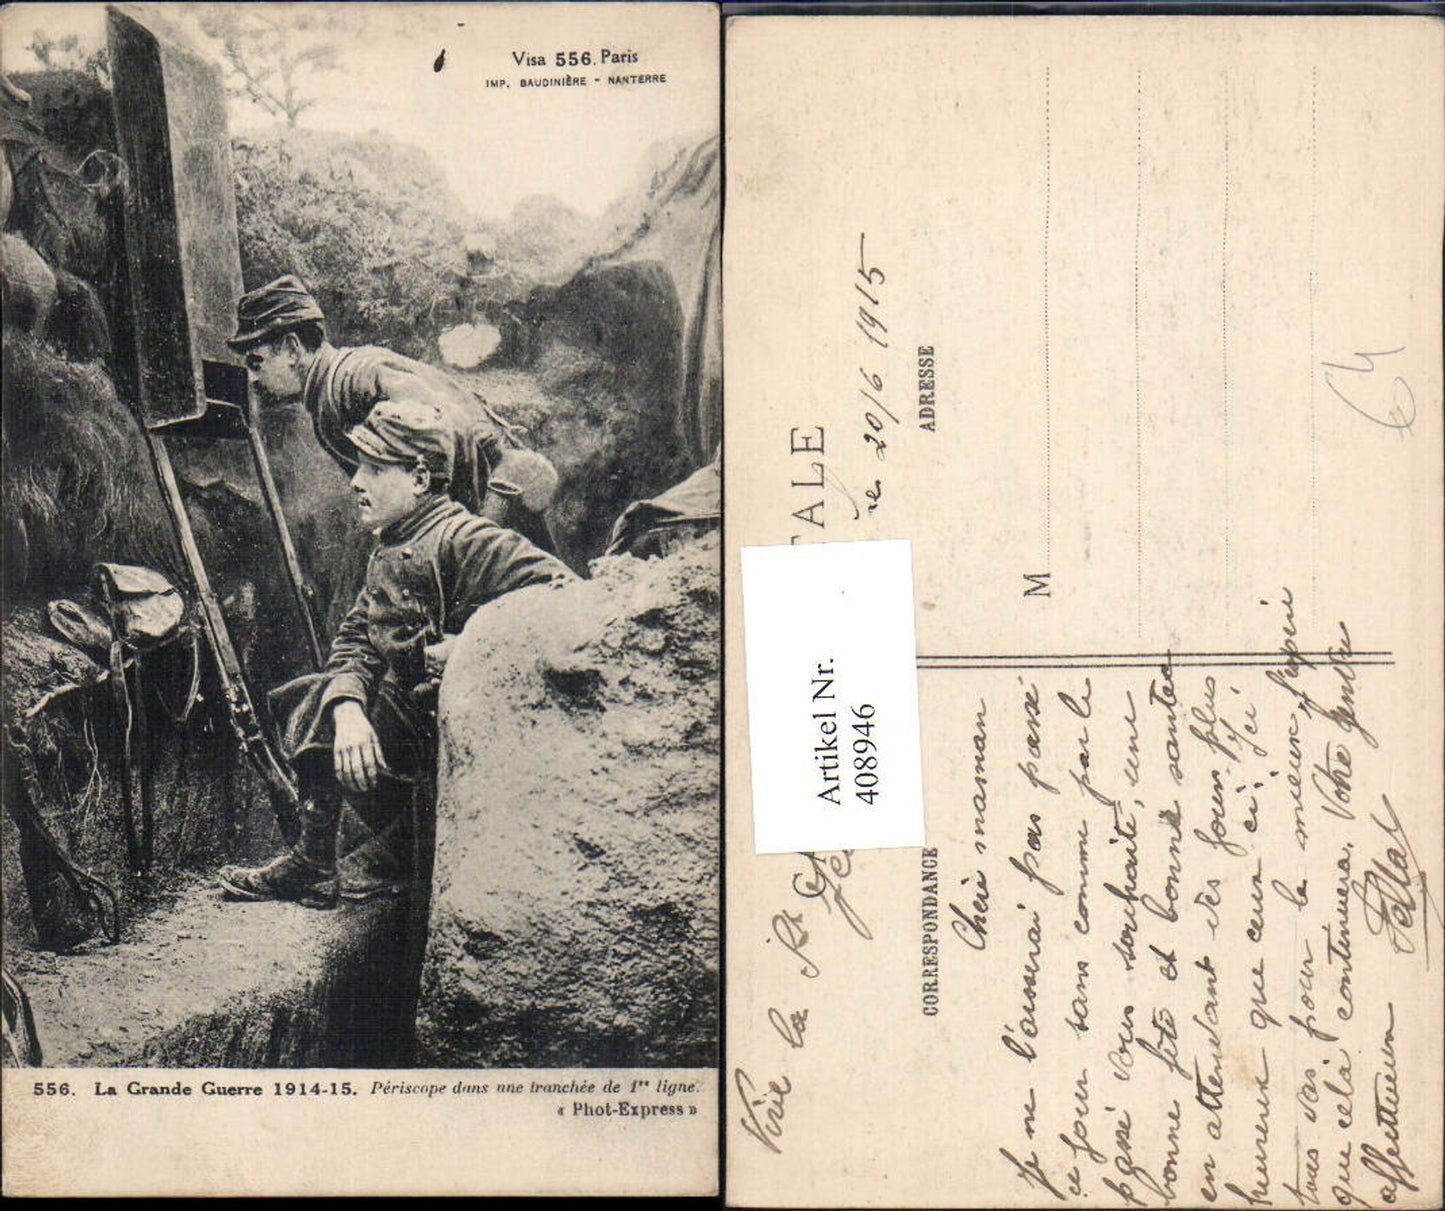 Visa 556. Paris
IMP. BAUDINIÈRE - NANTERRE
556. La Grande Guerre 1914-15. Périscope dans une tranchée de 1re ligne.
« Phot-Express »
Vive la
ALE
le 20/6 1915
Artikel Nr.
408946
CORRESPONDANCE
ADRESSE
M
Chère maman
Je ne laisserai pas passé
ce jour sans comme par le
passé vous souhaité, une
bonne fête et bonne santée
en attendant des jours plus
heureux que ceux ci; Ici,
tous vas pour le mieux j'espère
que cela continuera. Votre Gendre
affectueux
64